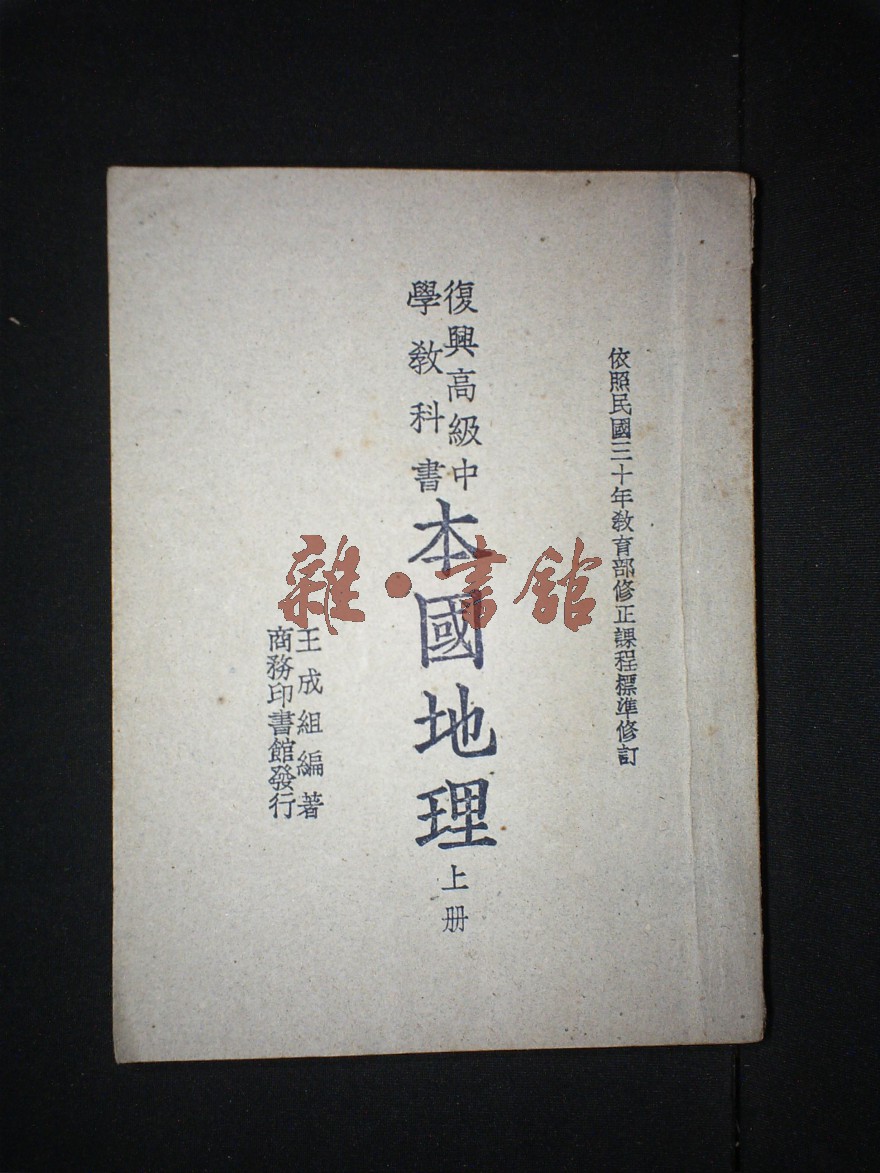 依照民國三十年教育部修正課程標準修訂
復興高級中
學教科書
本國地理
上册
王成組編著
商務印書館發行
雜·書館